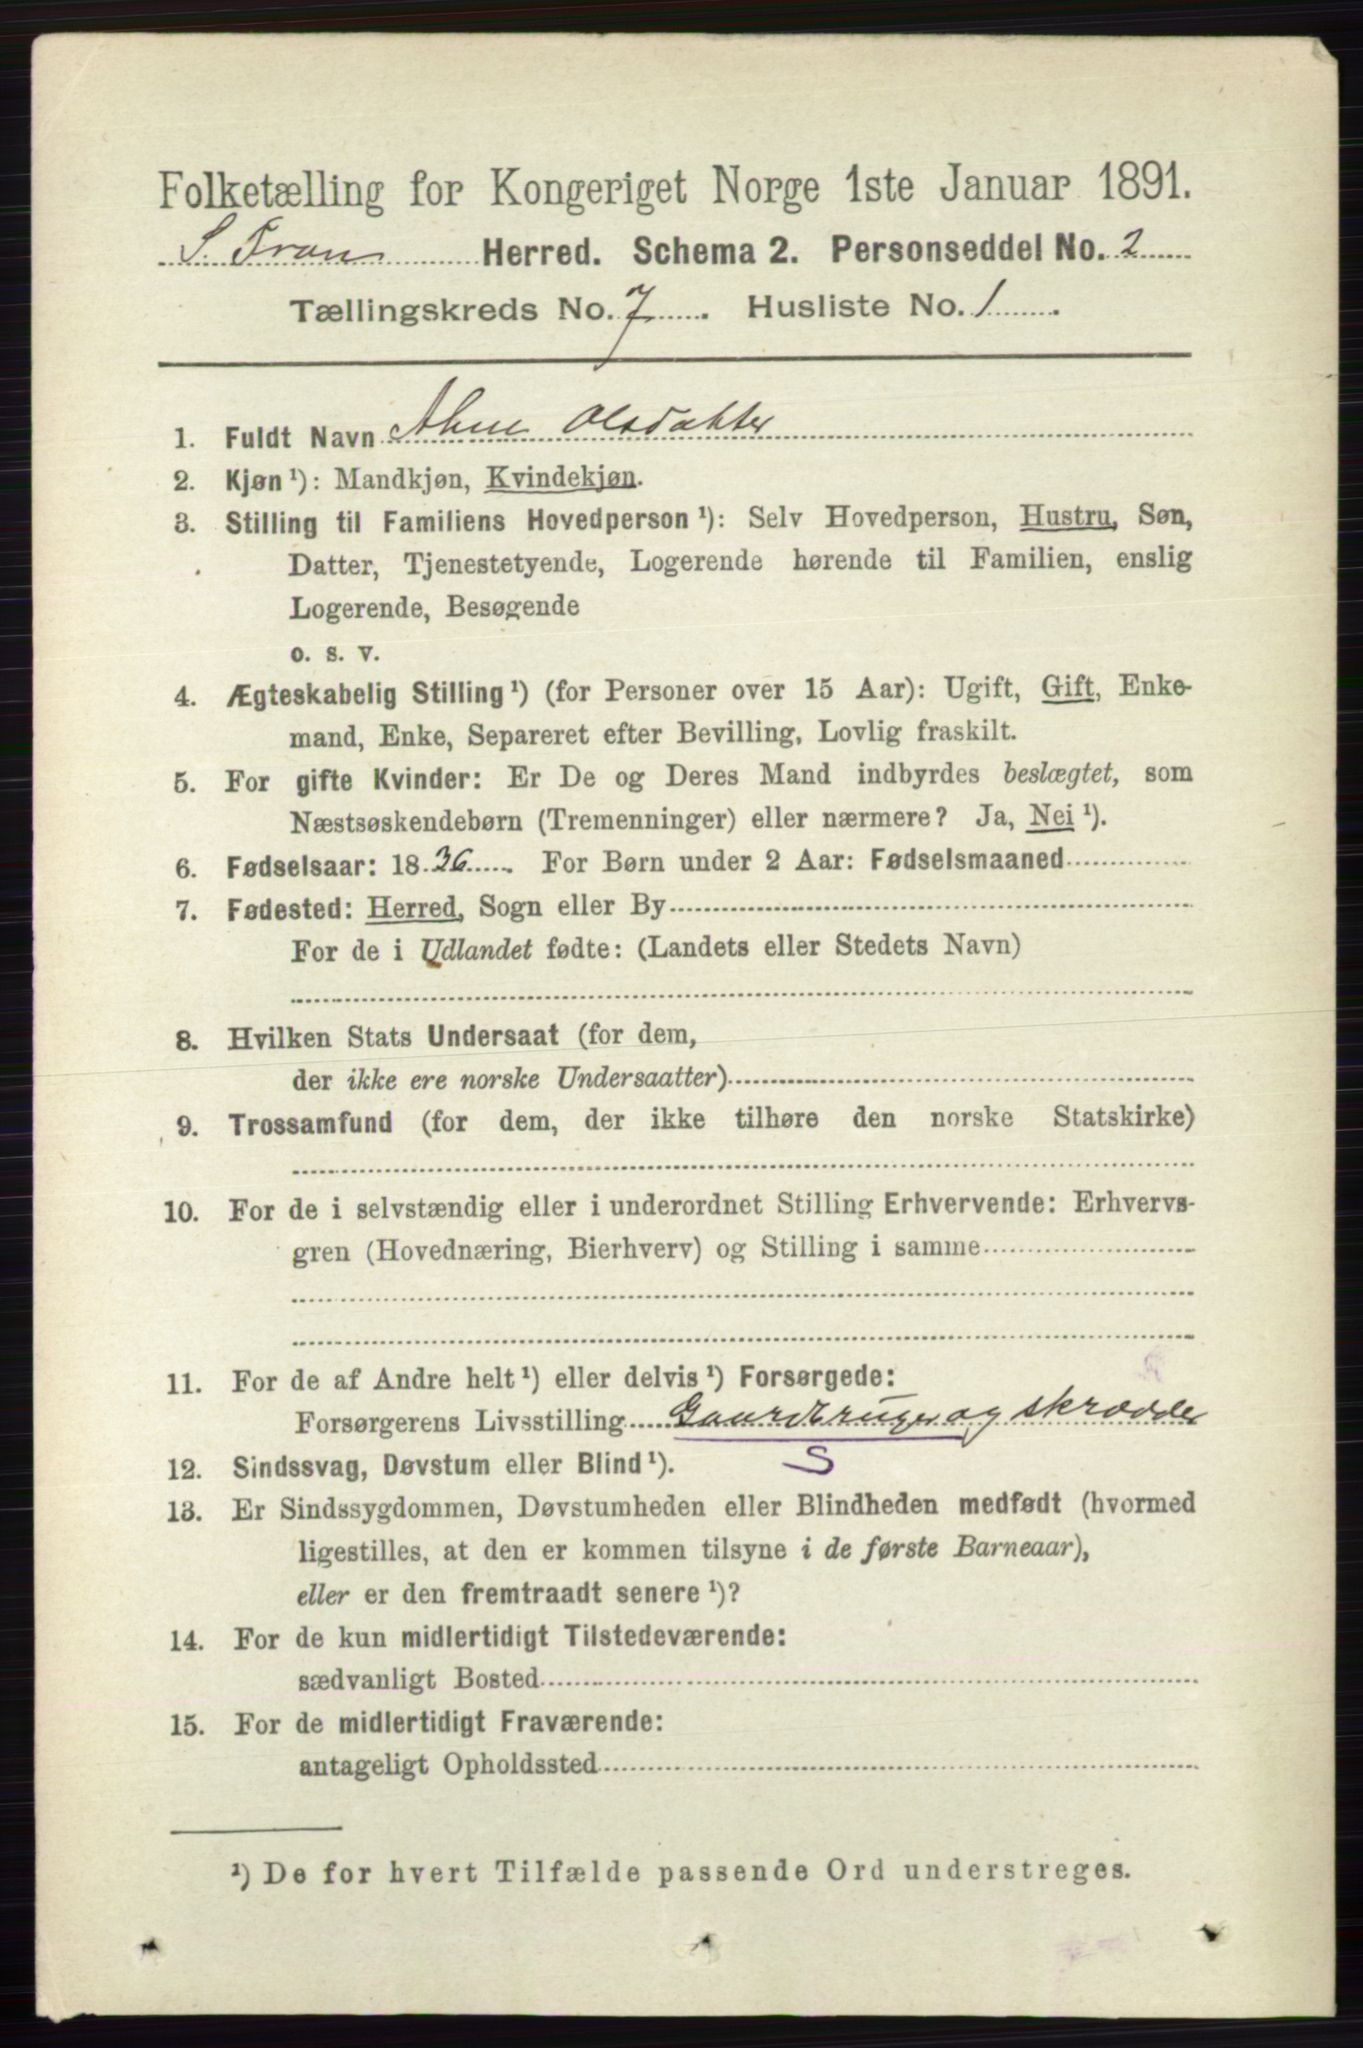 Folketælling for Kongeriget Norge 1ste Januar 1891.
S. Fron Herred. Schema 2. Personseddel No. 2
Tællingskreds No. 7. Husliste No. 1.
1. Fuldt Navn Olsdatter
2. Kjøn ¹): Mandkjøn, Kvindekjøn.
3. Stilling til Familiens Hovedperson ¹): Selv Hovedperson, Hustru, Søn,
Datter, Tjenestetyende, Logerende hørende til Familien, enslig
Logerende, Besøgende
o. s. v.
4. Ægteskabelig Stilling ¹) (for Personer over 15 Aar): Ugift, Gift, Enke-
mand, Enke, Separeret efter Bevilling, Lovlig fraskilt.
5. For gifte Kvinder: Er De og Deres Mand indbyrdes beslægtet, som
Næstsøskendebørn (Tremenninger) eller nærmere? Ja, Nei ¹).
6. Fødselsaar: 1836. For Børn under 2 Aar: Fødselsmaaned
7. Fødested: Herred, Sogn eller By
For de i Udlandet fødte: (Landets eller Stedets Navn)
8. Hvilken Stats Undersaat (for dem,
der ikke ere norske Undersaatter)
9. Trossamfund (for dem, der ikke tilhøre den norske Statskirke)
10. For de i selvstændig eller i underordnet Stilling Erhvervende: Erhvervs-
gren (Hovednæring, Bierhverv) og Stilling i samme
11. For de af Andre helt ¹) eller delvis ¹) Forsørgede:
Forsørgerens Livsstilling Gaardbruger og skrædder
12. Sindssvag, Døvstum eller Blind ¹). S
13. Er Sindssygdommen, Døvstumheden eller Blindheden medfødt (hvormed
ligestilles, at den er kommen tilsyne i de første Barneaar),
eller er den fremtraadt senere ¹)?
14. For de kun midlertidigt Tilstedeværende:
sædvanligt Bosted
15. For de midlertidigt Fraværende:
antageligt Opholdssted
¹) De for hvert Tilfælde passende Ord understreges.